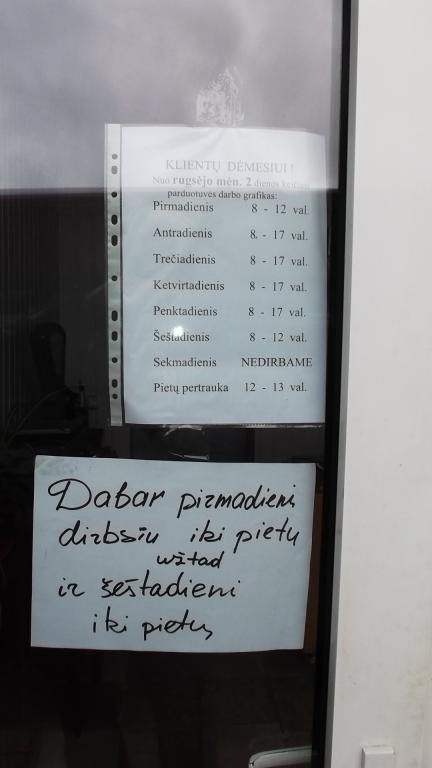 KLIENTŲ DĖMESIUI !
Nuo rugsėjo mėn. 2 dienos keičiasi
parduotuvės darbo grafikas:
Pirmadienis 8 - 12 val.
Antradienis 8. - 17 val.
Trečiadienis 8 - 17 val.
Ketvirtadienis 8 - 17 val.
Penktadienis 8 - 17 val.
Šeštadienis 8 - 12 val.
Sekmadienis NEDIRBAME
Pietų pertrauka 12 - 13 val.
Dabar pirmadienį
dirbsiu iki pietų
užtad
ir šeštadienį
iki pietų